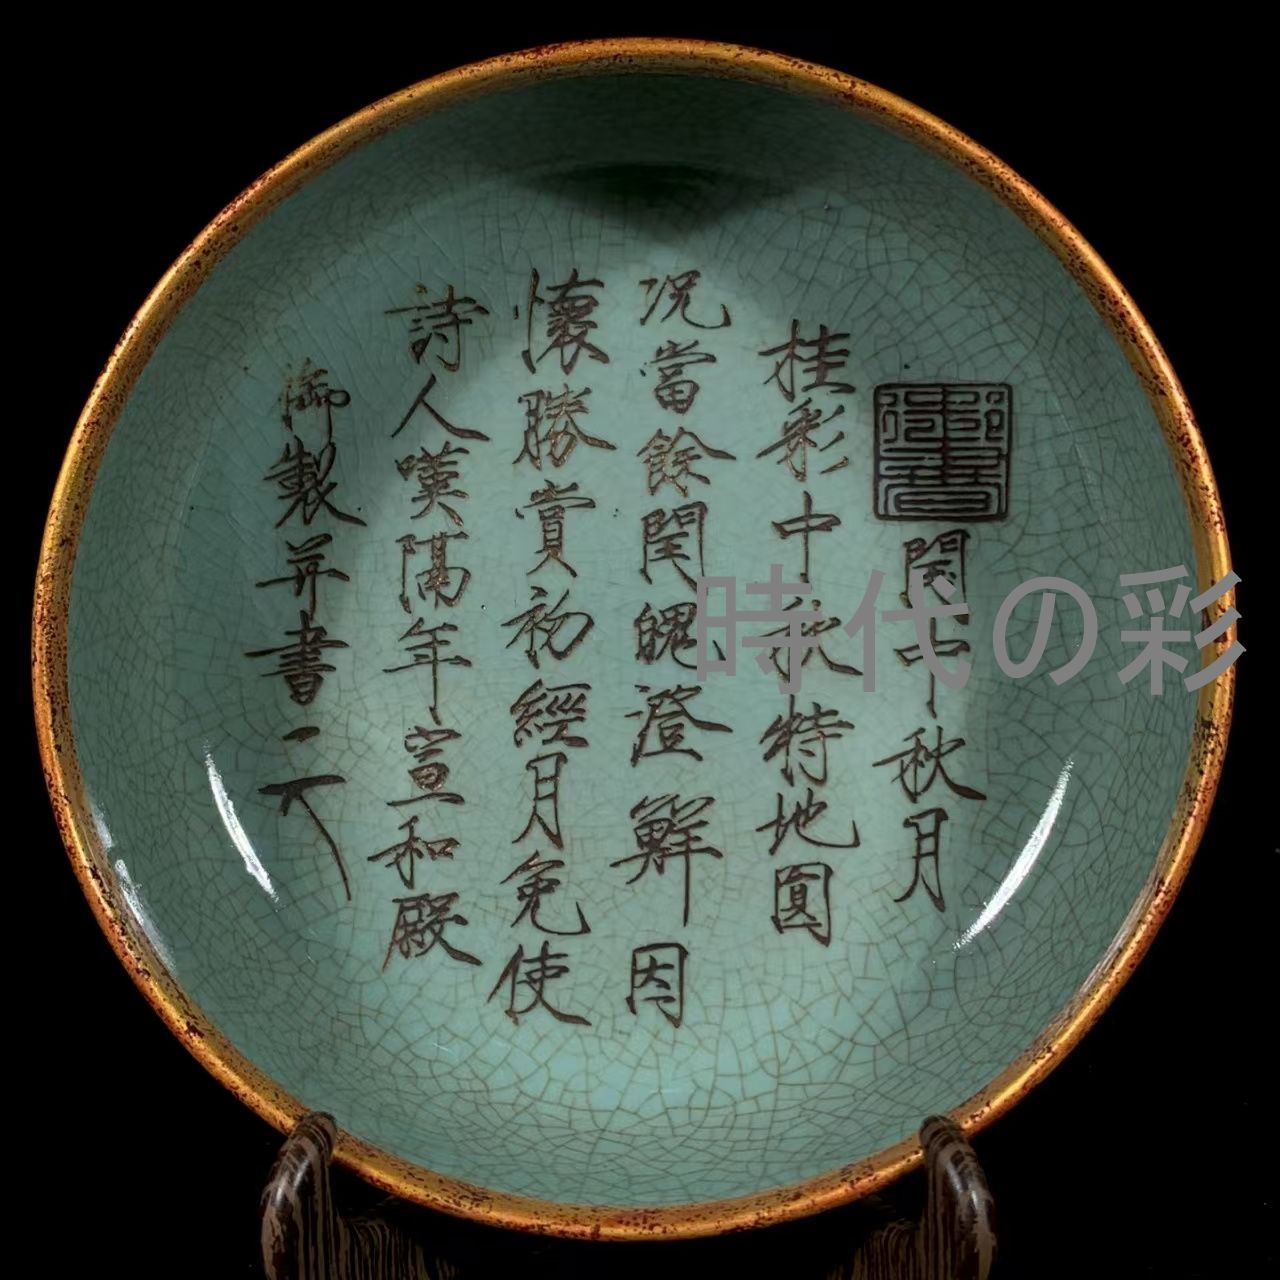 御書
閏中秋月
桂彩中秋特地圓
況當餘閏魄澄鮮因
懷勝賞初經月免使
詩人嘆隔年宣和殿
御製并書
時代の彩